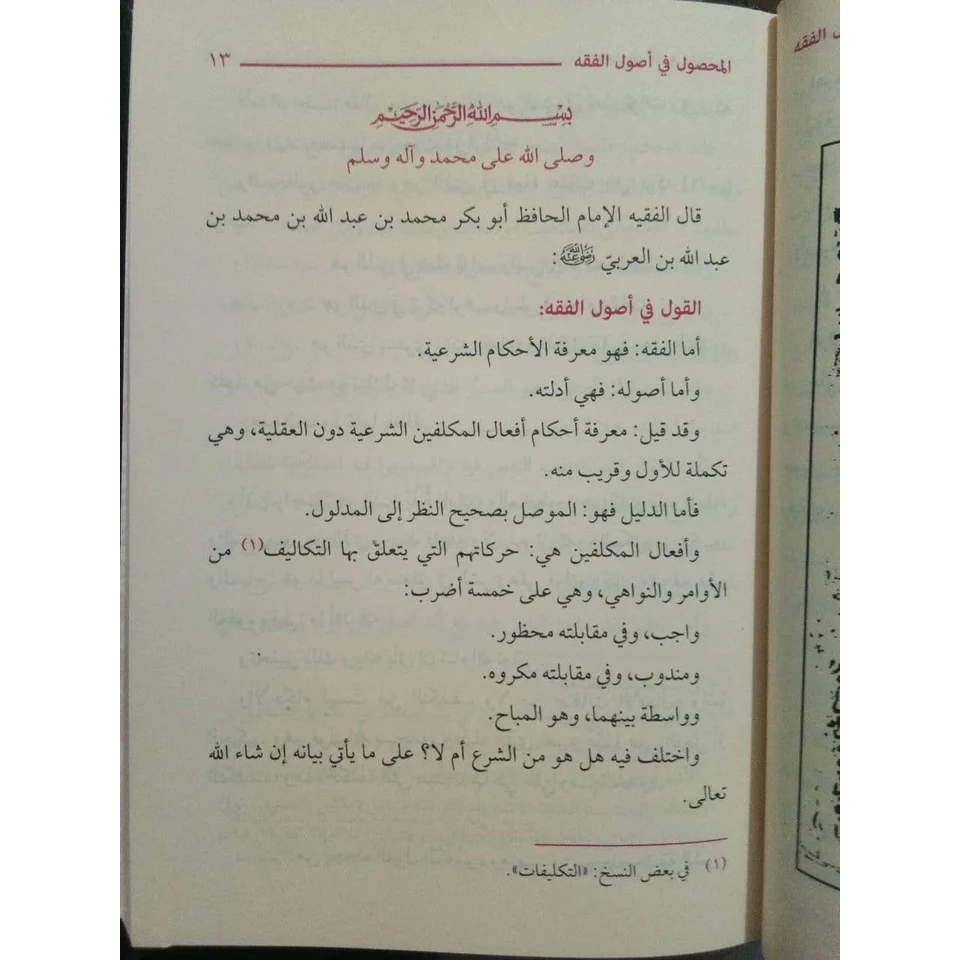 المحصول في أصول الفقه ١٣
بسم الله الرحمن الرحيم
وصلى الله على محمد وآله وسلم
قال الفقيه الإمام الحافظ أبو بكر محمد بن عبد الله بن محمد بن
عبد الله بن العربيّ رضي الله عنه:
القول في أصول الفقه:
أما الفقه: فهو معرفة الأحكام الشرعية.
وأما أصوله: فهي أدلته.
وقد قيل: معرفة أحكام أفعال المكلفين الشرعية دون العقلية، وهي
تكملة للأول وقريب منه.
فأما الدليل فهو: الموصل بصحيح النظر إلى المدلول.
وأفعال المكلفين هي: حركاتهم التي يتعلق بها التكاليف(١) من
الأوامر والنواهي، وهي على خمسة أضرب:
واجب، وفي مقابلته محظور.
ومندوب، وفي مقابلته مكروه.
وواسطة بينهما، وهو المباح.
واختلف فيه هل هو من الشرع أم لا؟ على ما يأتي بيانه إن شاء الله
تعالى.
(١) في بعض النسخ: «التكليفات».
ل الفقه